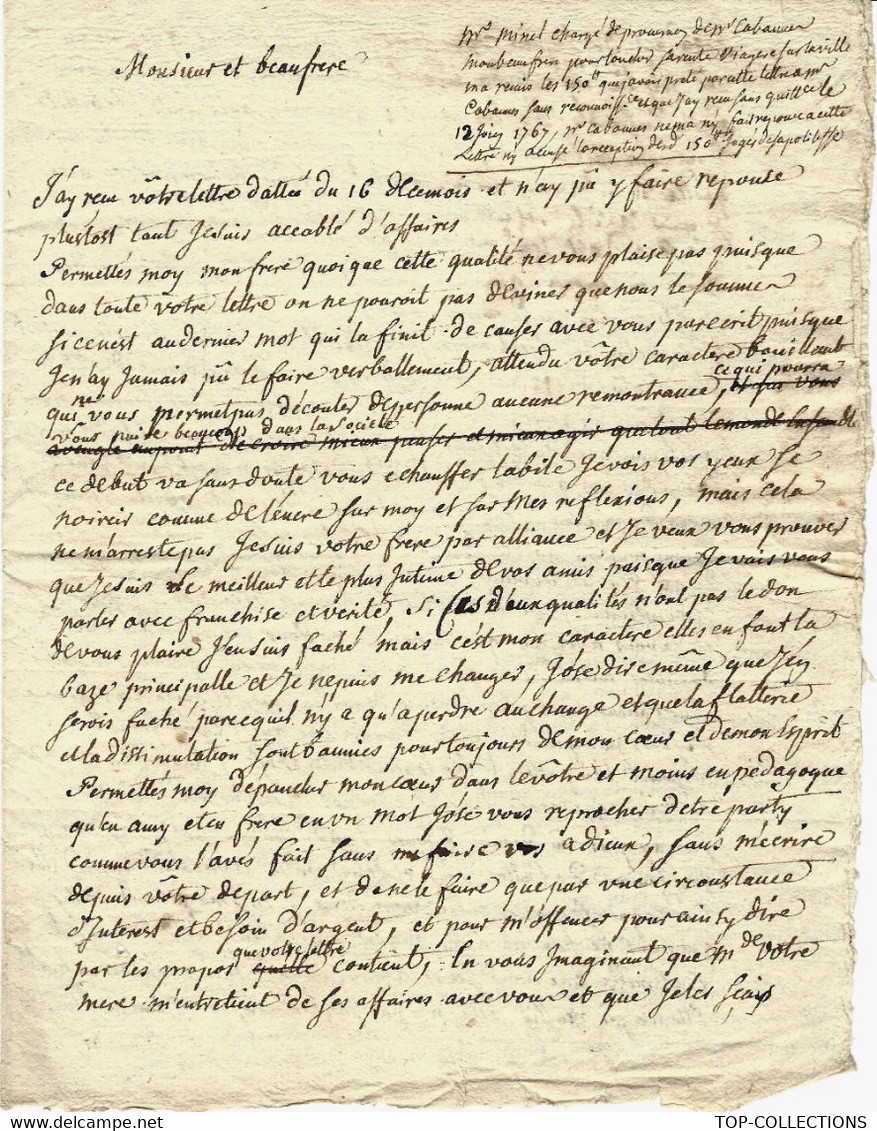 Monsieur et beaufrere
Mr. Minel chargé de procuration de Mr Cabannes
mon beaufrere pour toucher sa rente viagere sur la ville
m'a remis les 150tt que j'avois preté par cette lettre a mr
Cabannes sans reconnoiss.ce et que j'ay reçu sans quitt.ce le
12 Juin 1767, Mr Cabannes ne m'a ny fait reponce a cette
Lettre ny accusé la reception desd 150tt Jugés de sa politesse
J'ay reçu vôtre lettre dattée du 16 de ce mois et n'ay pû y faire reponse
plustost tant Je suis accablé d'affaires
Permettés moy mon frere quoique cette qualité ne vous plaise pas puisque
dans toute vôtre lettre on ne pouroit pas deviner que nous le sommes
si ce n'est au dernier mot qui la finit de causer avec vous par ecrit puisque
Je n'ay Jamais pû le faire verballement, attendu vôtre caractere bouillant
qui ne vous permet pas d'écouter de personne aucune remontrance, ce qui pourra
vous nuire beaucoup dans la société
ce debut va sans doute vous echauffer la bile Je vois vos yeux se
noircir comme de l'encre sur moy et sur mes reflexions, mais cela
ne m'arreste pas Je suis votre frere par alliance et Je veux vous prouver
que Je suis le meilleur et le plus Intime de vos amis puisque Je vais vous
parler avec franchise et verité, si ces deux qualités n'ont pas le don
de vous plaire J'en suis faché mais c'est mon caractere elles en font la
baze principalle et Je ne puis me changer, J'ose dire même que J'en
serois faché parce qu'il n'y a qu'a perdre au change et que la flatterie
et la dissimulation sont bannies pour toujours de mon cœur et de mon Esprit
Permettés moy d'épancher mon cœur dans le vôtre et moins en pedagogue
qu'en amy et en frere en un mot J'ose vous reprocher d'etre party
comme vous l'avés fait sans me faire vos adieux, sans m'écrire
depuis vôtre depart, et de ne le faire que par une circonstance
d'Interest et besoin d'argent, et pour m'offencer pour ainsy dire
par les propos que votre lettre contient, En vous Imaginant que Mde votre
mere m'entretient de ses affaires avec vous et que Je les sçais
TOP-COLLECTIONS